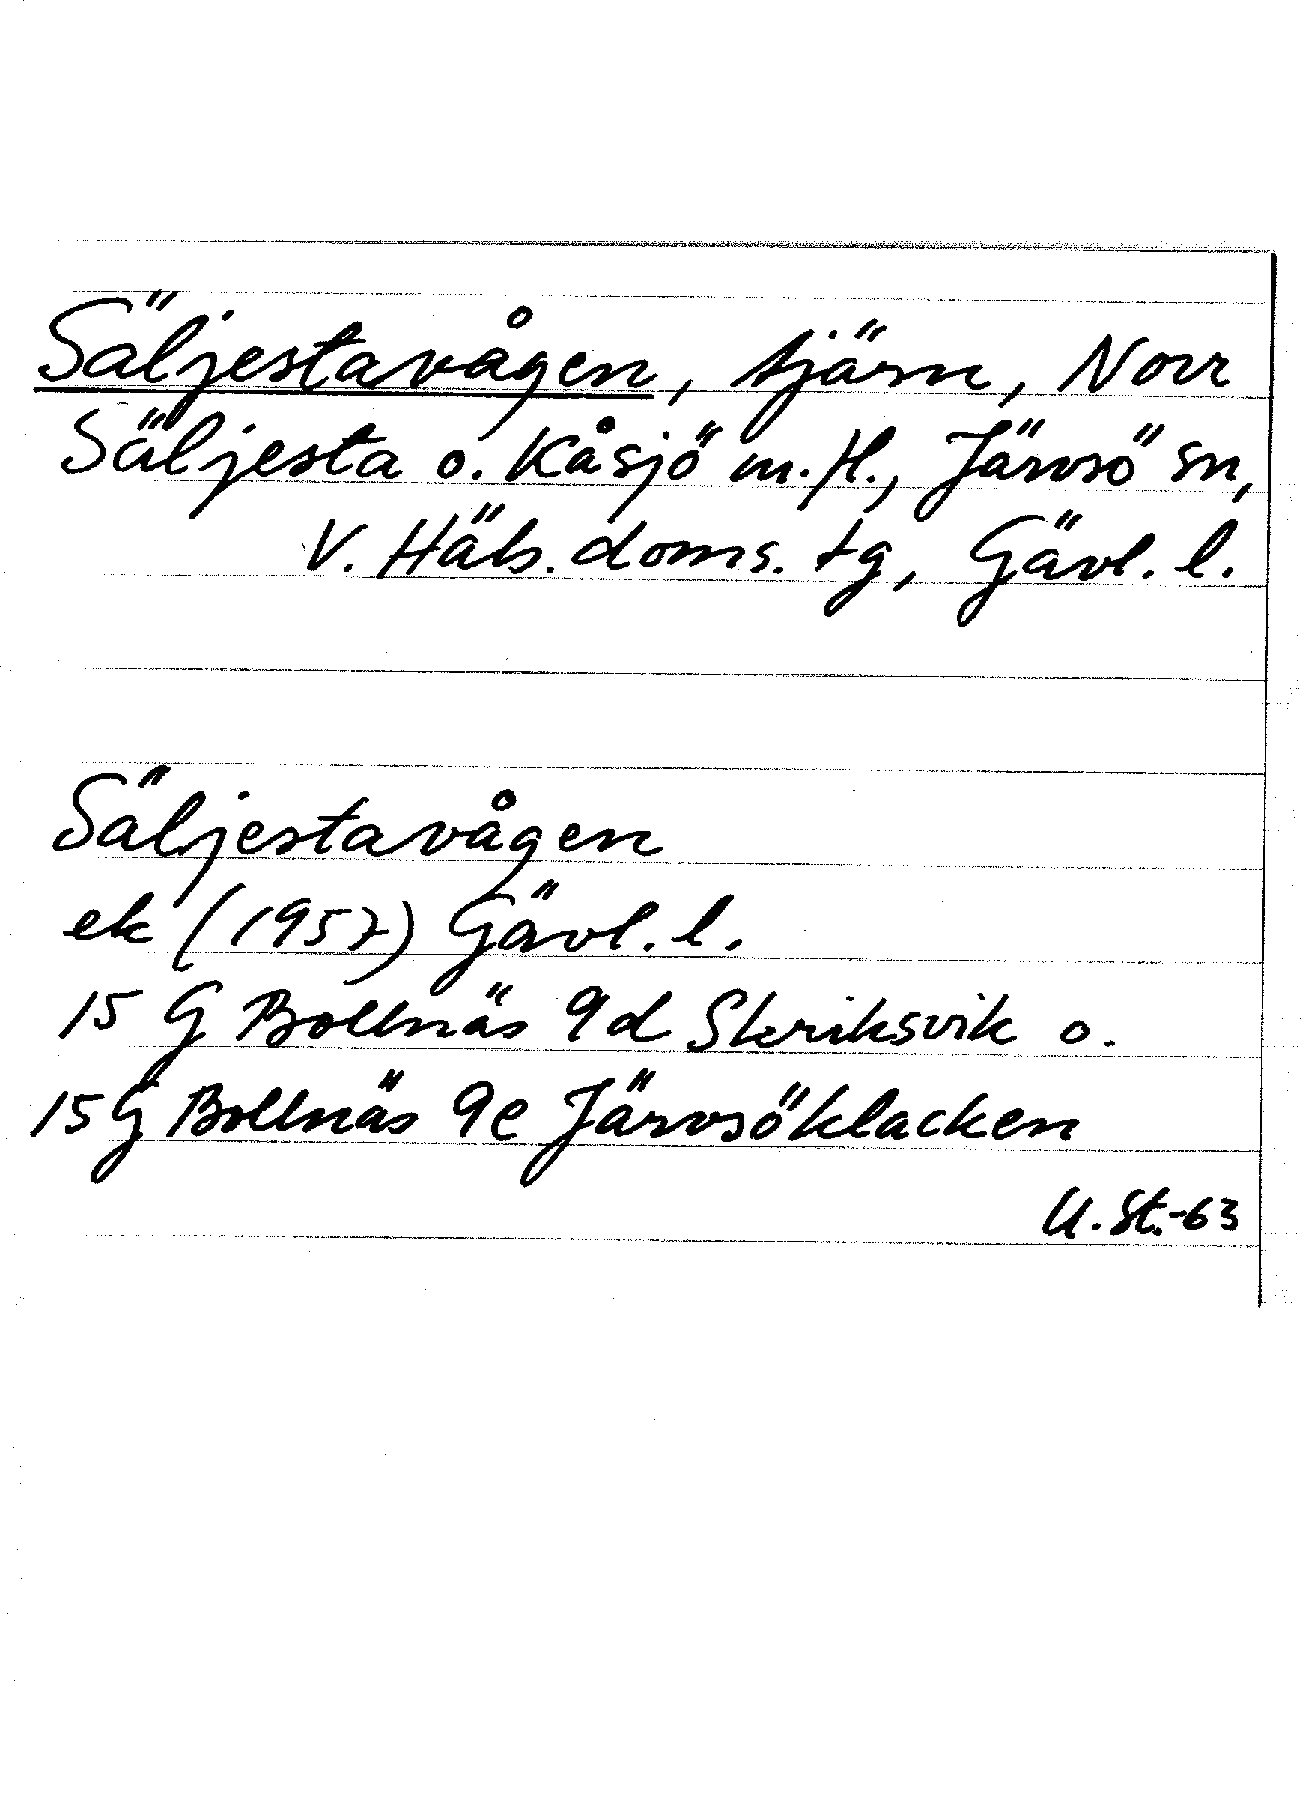 Säljestavågen, tjärn, Norr
Säljesta o. Kåsjö m.fl., Järvsö sn,
V. Häls. doms. tg, Gävl. l.
Säljestavågen
ek (1957) Gävl. l.
15 G Bollnäs 9d Skriksvik o.
15 G Bollnäs 9e Järvsöklacken
U. St.-63